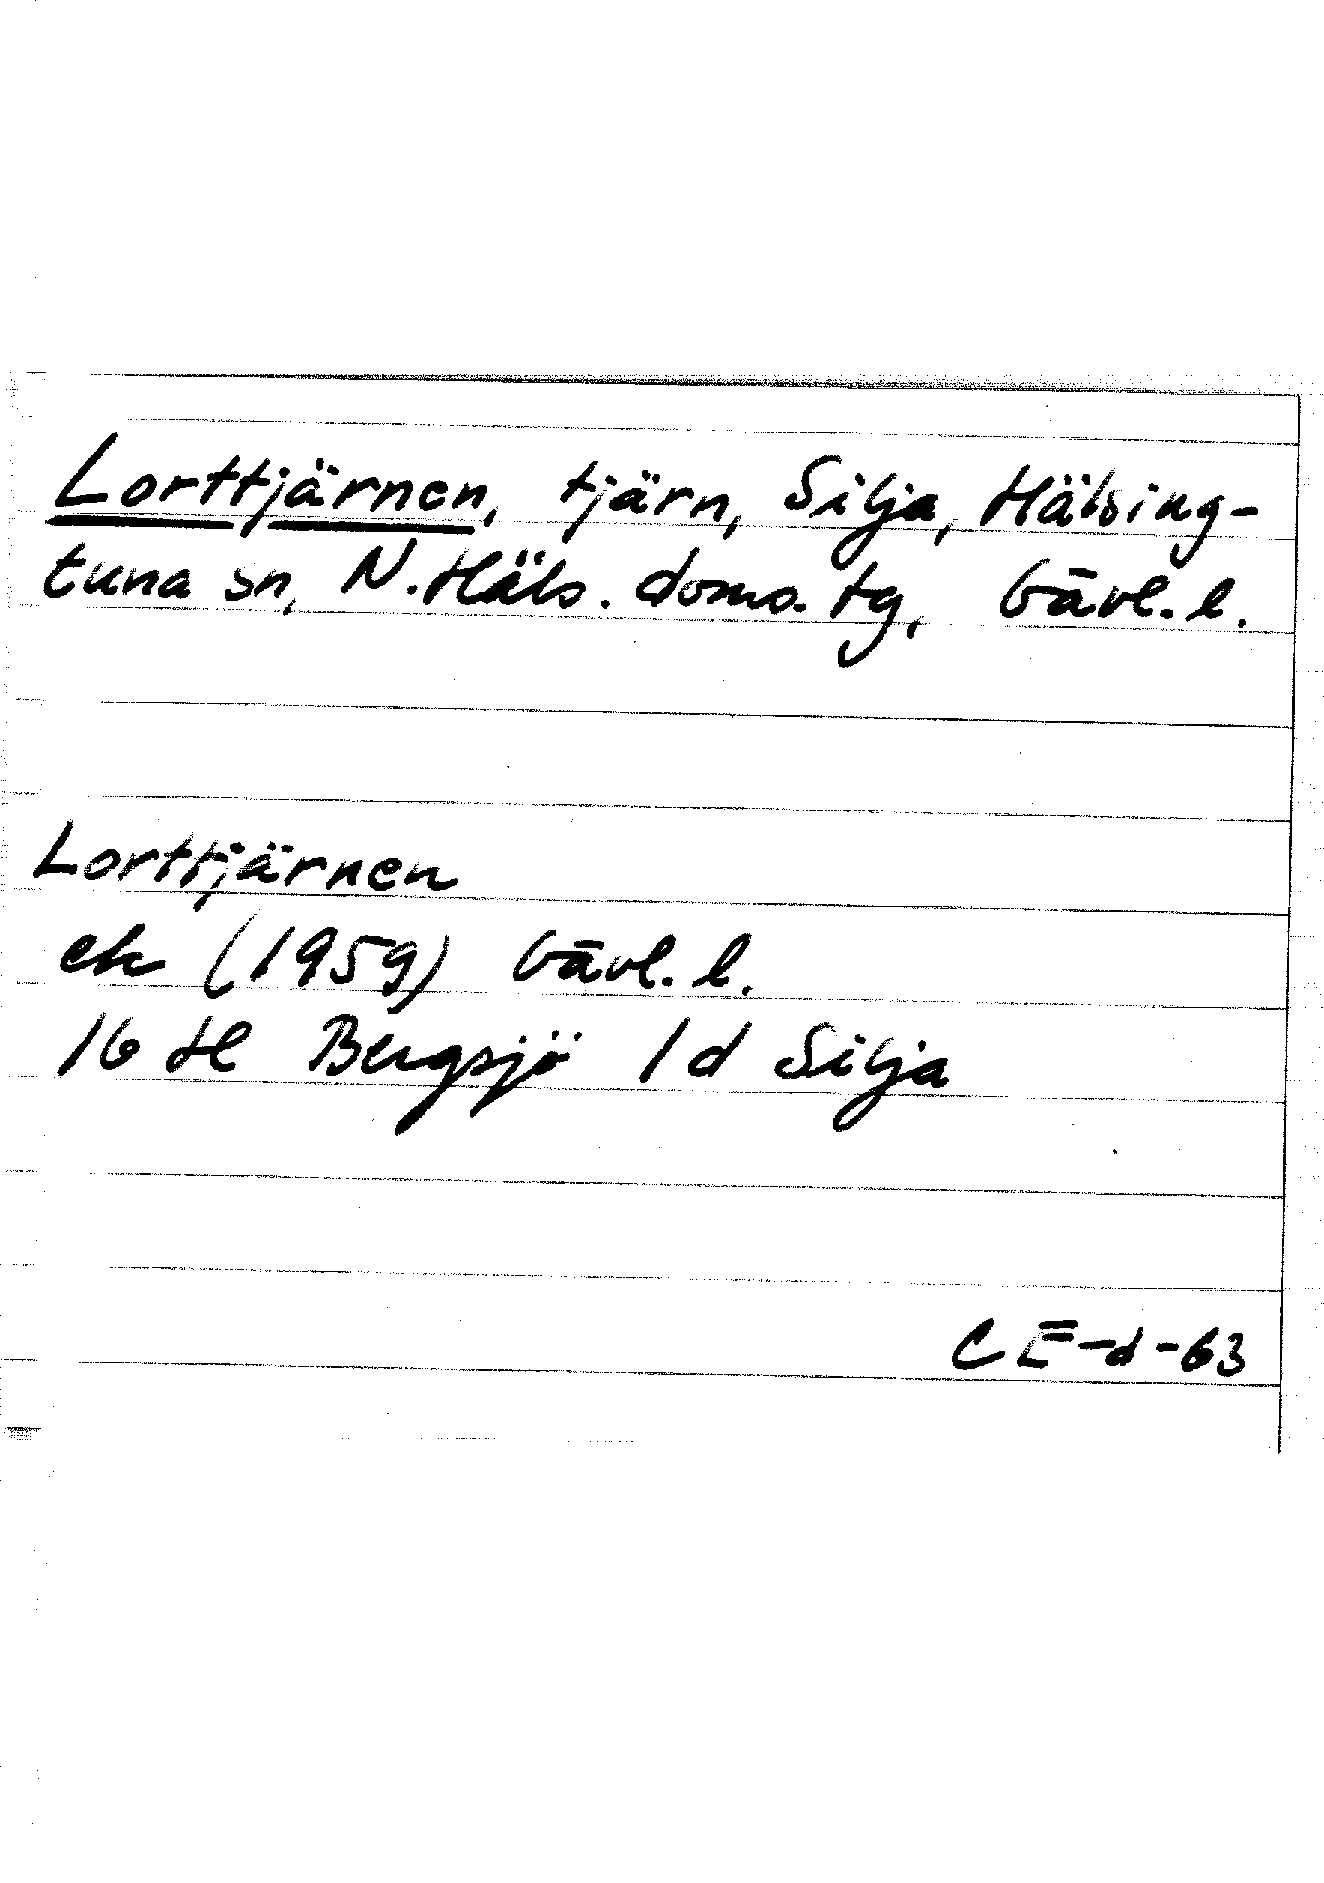 Lorttjärnen, tjärn, Silja, Hälsing-
tuna sn, N. Häls. doms. tg, Gävl. l.
Lorttjärnen
ek (1959) Gävl. l.
16 H Bergsjö 1 d Silja
CE-d-63